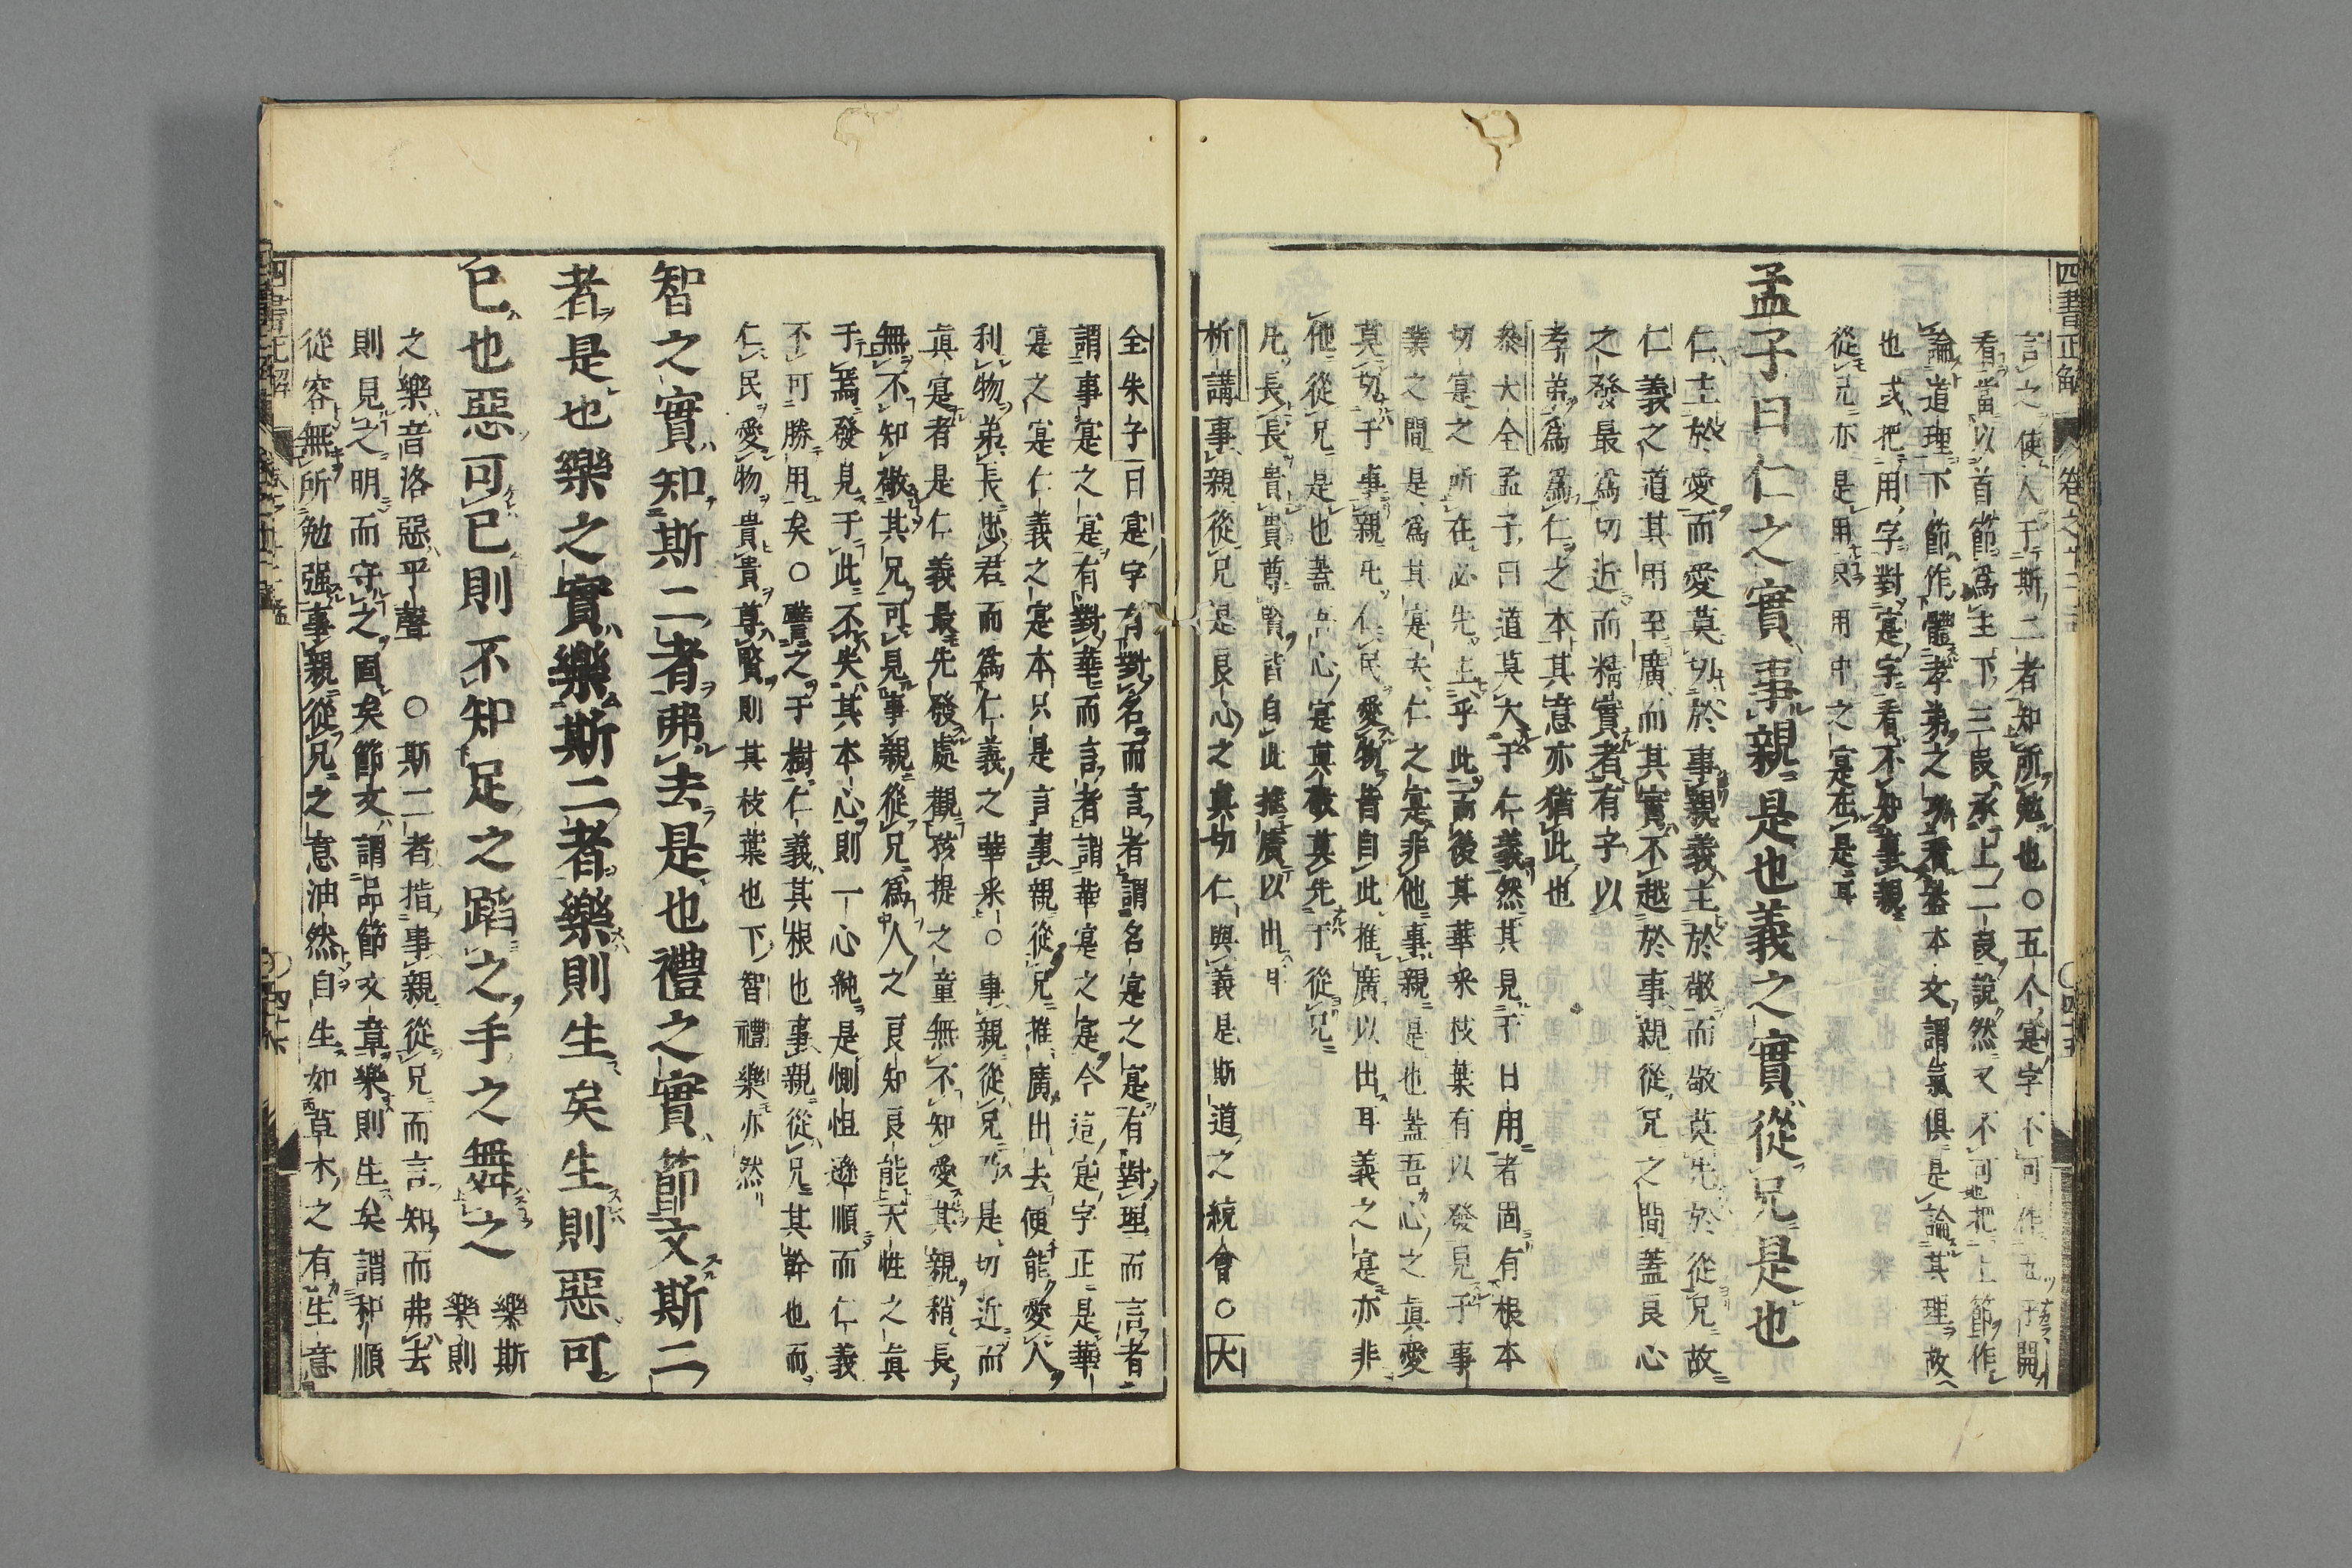 四書正解 卷之十二
言之使人于斯二者知所勉也○五个寔字不可作五件開
看當以首節爲主下三段承上二段說然又不可把上節作
論道理下節作體孝弟之功看蓋本文謂氣俱是論其理故
也或把用字對寔字看不知事親
從兄亦是用只用中之寔在是耳
孟子曰仁之實事親是也義之實從兄是也
仁主於愛而愛莫切於事親義主於敬而敬莫先於從兄故
仁義之道其用至廣而其實不越於事親從兄之間蓋良心
之發最爲切近而精實者有子以
孝弟爲爲仁之本其意亦猶此也
參大全孟子曰道莫大于仁義然其見于日用者固有根本
切寔之所在必先立乎此而後其華采枝葉有以發見于事
業之間是爲其寔夫仁之寔非他事親是也蓋吾心之眞愛
莫切于事親凡仁民愛物皆自此推廣以出耳義之寔亦非
他從兄是也蓋吾心寔眞敬莫先于從兄
凡長長貴貴尊賢皆自此推廣以出耳
析講事親從兄是良心之眞切仁與義是斯道之統會○大
全朱子曰寔字有對名而言者謂名寔之寔有對理而言者
謂事寔之寔有對華而言者謂華寔之寔今這寔字正是華
寔之寔仁義之寔本只是言事親從兄推廣出去便能愛人
利物弟長忠君而爲仁義之華采○事親從兄乃是切近而
眞寔者是仁義最先發處觀孩提之童無不知愛其親稍長
無不知敬其兄可見事親從兄爲人之良知良能天性之眞
于焉發見于此不失其本心則一心純是惻怛遜順而仁義
不可勝用矣○譬之于樹仁義其根也事親從兄其幹也而
仁民愛物貴貴尊賢則其枝葉也下智禮樂亦然
智之實知斯二者弗去是也禮之實節文斯二
者是也樂之實樂斯二者樂則生矣生則惡可
已也惡可已則不知足之蹈之手之舞之
樂斯
樂則
之樂音洛惡平聲 ○斯二者指事親從兄而言知而弗去
則見之明而守之固矣節文謂品節文章樂則生矣謂和順
從容無所勉强事親從兄之意油然自生如草木之有生意